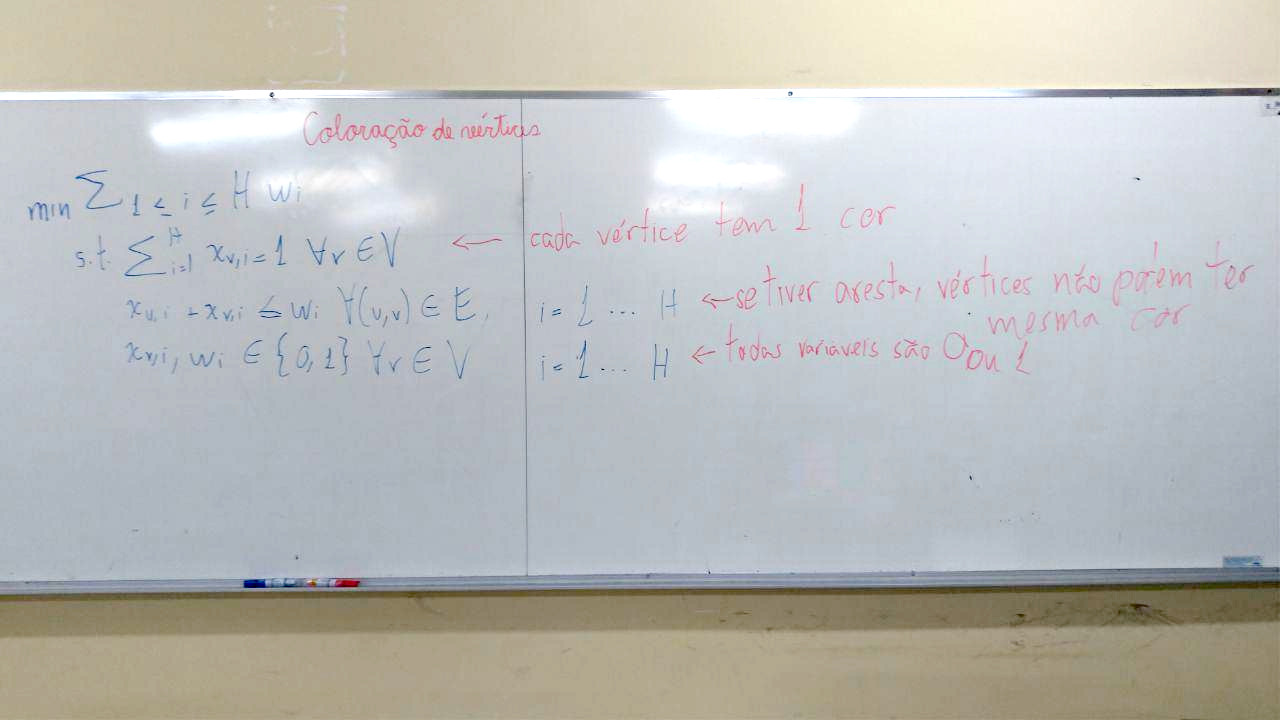 Coloração de vértices
min ∑ 1 ≤ i ≤ H wi
s.t. ∑ᴴi=1 xv,i = 1 ∀v ∈ V ← cada vértice tem 1 cor
xu,i + xv,i ≤ wi ∀(u,v) ∈ E, i = 1 ... H ← se tiver aresta, vértices não podem ter mesma cor
xv,i, wi ∈ {0,1} ∀v ∈ V i = 1 ... H ← todas variáveis são 0 ou 1